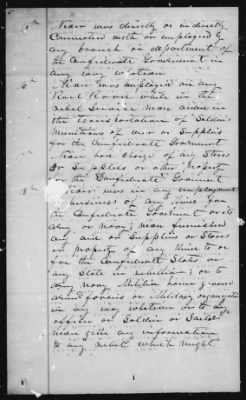 Never was directly or indirectly
Connected with or employed by
any branch or department of
the Confederate Government in
any way whatever
16th Never was employed on any
while in the
Rebel Service never aided in
the transportation of Soldiers
Munitions of war or Supplies
for the Confederate Government
Never had charge of any Stores
or Supplies or other property
for the Confederate Government
18th Never was in any employment
or business of any kind for
the Confederate Government or its
army or navy; never furnished
any aid or Supplies or Stores
or property of any kind to or
for the Confederate States or
any State in rebellion; or to
any navy Militia home guards
armed forces or Military organization
in any way whatever or to any
officer or Soldier or Sailor
never give any information
to any rebel which might